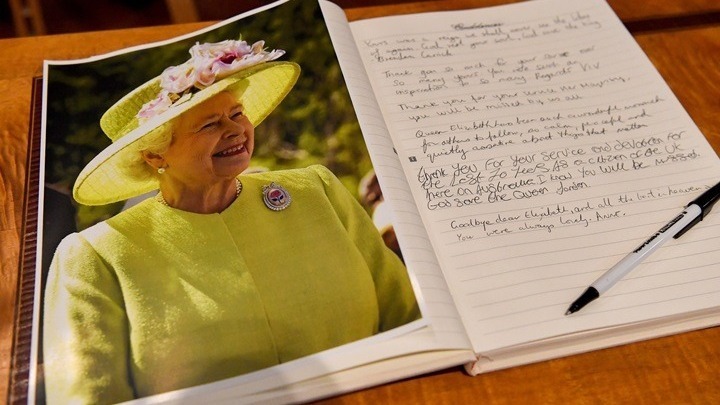 Condolences
Yours was a reign we shall never see the likes
of again. God rest your soul, God save the king
Thank you so much for your service over
so many years. You have been an
inspiration to so many. Regards V.V
Thank you for your service Her Majesty,
you will be missed by us all
Queen Elizabeth has been an monarch
for others to follow, so calm, peaceful and
quietly assertive about things that matter
Thank You For Your service and devotion for
the last 70 years AS a citizen of the UK
here on I know You will be missed
God save the Queen
Goodbye dear Elizabeth, and all the best in heaven
You were always lovely. Anne.